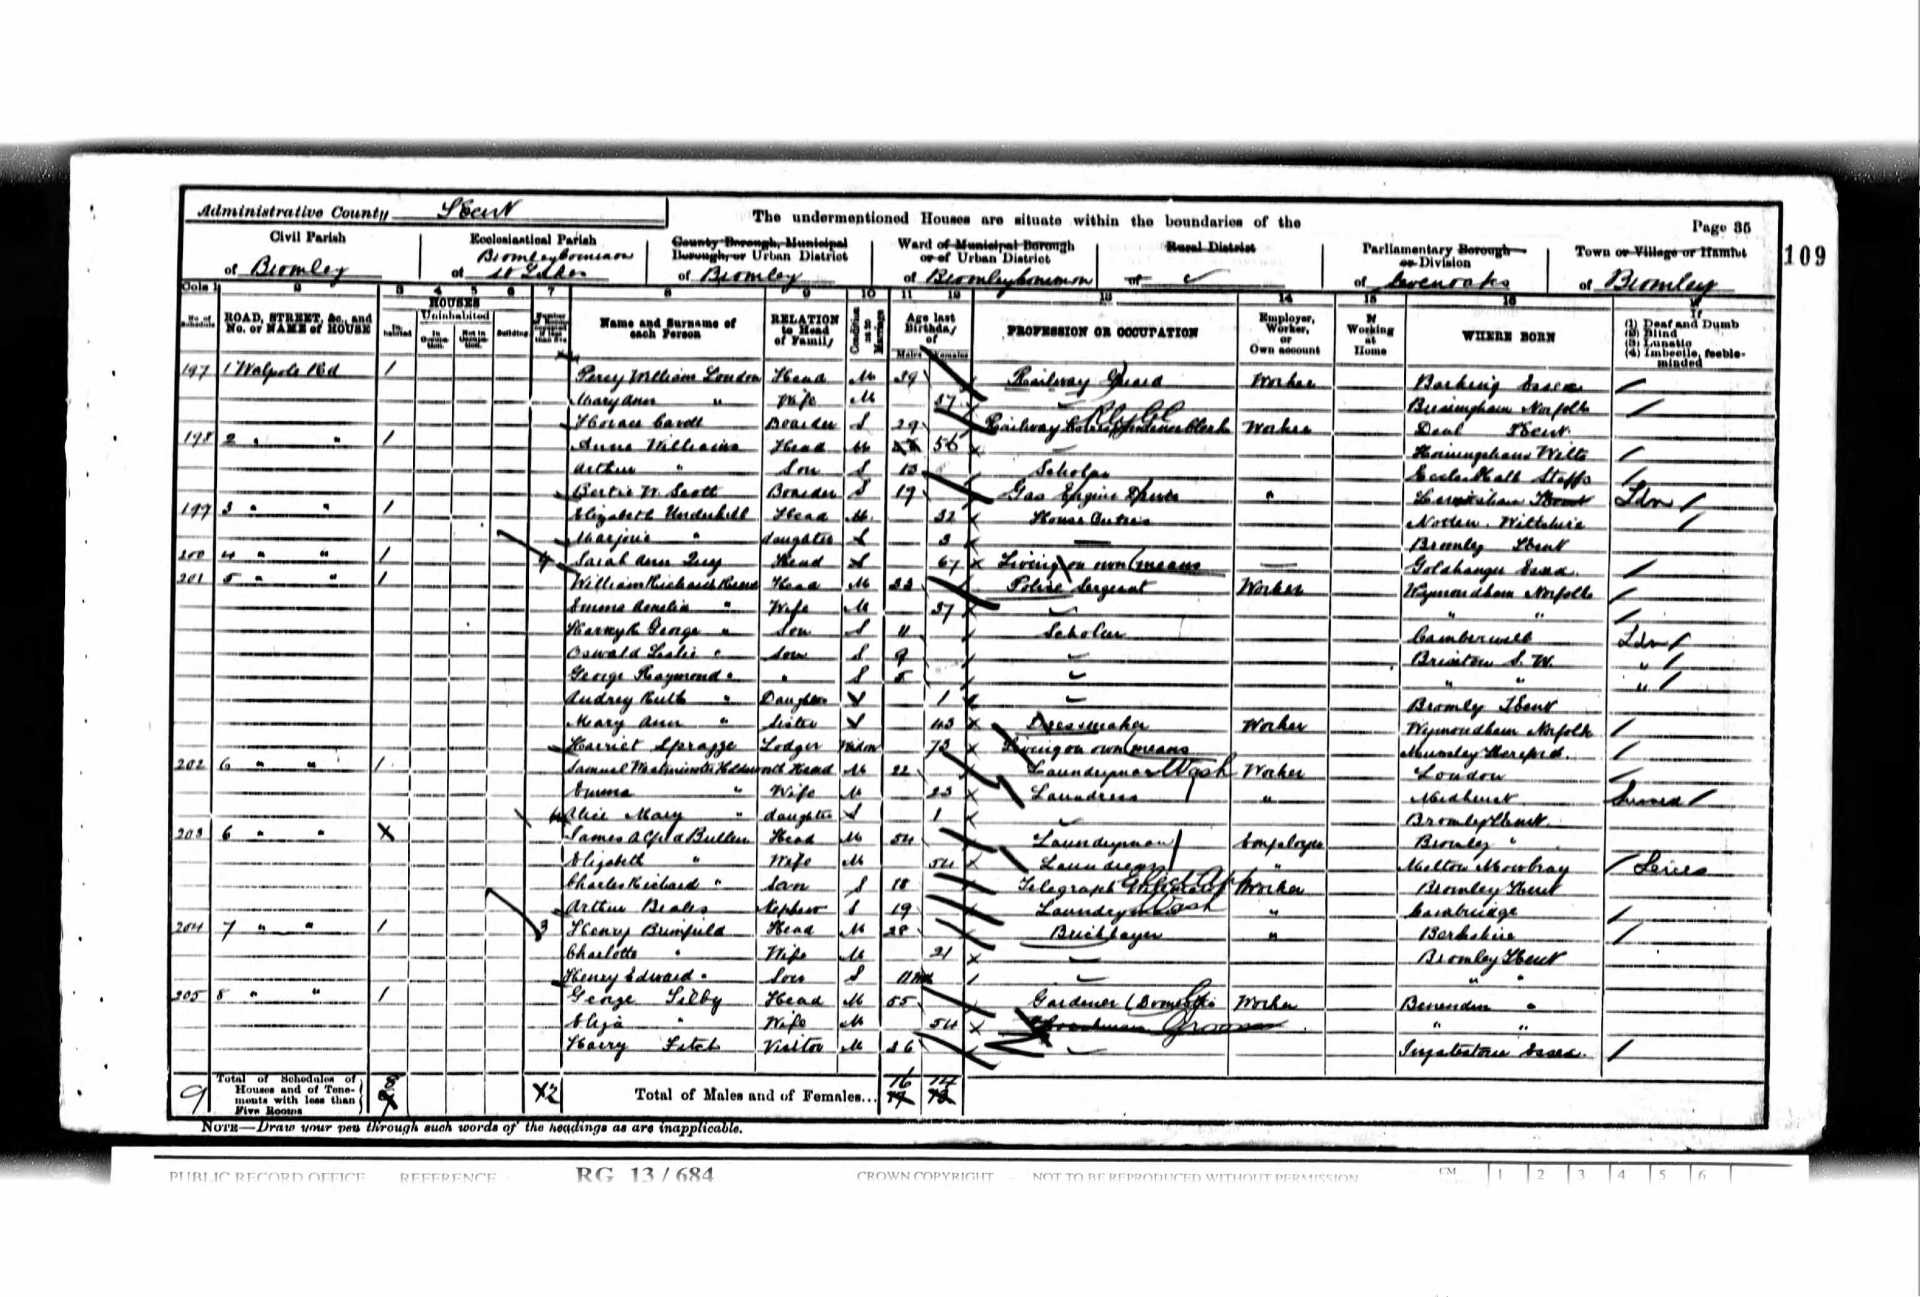 Administrative County Kent
The undermentioned Houses are situate within the boundaries of the
Page 35
109
Civil Parish
of Bromley
Ecclesiastical Parish
Bromley Common
of St Lukes
County Borough, Municipal
Borough, or Urban District
of Bromley
Ward of Municipal Borough
or of Urban District
of Bromley Common
Rural District
of
Parliamentary Borough
or Division
of Sevenoaks
Town or Village or Hamlet
of Bromley
Cols 1 2 3 4 5 6 7 8 9 10 11 12 13 14 15 16 17
No. of Schedule
ROAD, STREET, &c., and
No. or NAME of HOUSE
HOUSES
Inhabited
Uninhabited
In Occupation.
Not in Occupation.
Building
Name and Surname of
each Person
RELATION
to Head
of Family
Condition
as to
Marriage
Age last
Birthday
of
Males Females
PROFESSION OR OCCUPATION
Employer,
Worker,
or
Own account
If
Working
at
Home
WHERE BORN
If
(1) Deaf and Dumb
(2) Blind
(3) Lunatic
(4) Imbecile, feeble-
minded
197 1 Walpole Rd 1 Percy William London Head M 39 Railway Guard Worker Barking Essex
Mary Ann " Wife M 37 Norfolk
Horace Boarder S 29 Railway Clerk Worker Deal Kent
198 2 " " 1 Anna Williams Head 56 Wilts
Arthur " Son S 13 Scholar Eccleshall Staffs
Bertie W. Scott Boarder S 19 Gas Engine Driver " Lewisham Ldn
199 3 " " 1 Elizabeth Underhill Head M 32 House Duties Wiltshire
Marjorie " daughter S 3 Bromley Kent
200 4 " " 1 4 Sarah Ann Head S 67 Living on own means Goldhanger Essex
201 5 " " 1 William Richard Head M 33 Police Sergeant Worker Wymondham Norfolk
Emma Amelia " Wife M 37 " "
George " Son S 11 Scholar Camberwell Ldn
Oswald Leslie " Son S 9 Brixton S.W. "
George Raymond " " S 5 " " "
Audrey Ruth " Daughter 1 Bromley Kent
Mary Ann " Sister 43 Dressmaker Worker Wymondham Norfolk
Harriet Spragge Lodger Widow 73 Living on own means Hereford
202 6 " " 1 Samuel Westminster Holdsworth Head M 22 Laundryman Wash Worker London
Emma " Wife M 23 Laundress " Midhurst Sussex
Alice Mary " daughter S 1 Bromley Kent
203 6 " " James Alfred Bullen Head M 54 Laundryman Employer Bromley "
Elizabeth " Wife M 54 Laundress " Melton Mowbray Leics
Charles Richard " Son S 18 Telegraph Worker Bromley Kent
Arthur Beales Nephew S 19 Wash " Cambridge
204 7 " " 1 3 Henry Brimfield Head M 28 Bricklayer " Berkshire
Charlotte " Wife M 21 Bromley Kent
Henry Edward " Son S 11 " "
205 8 " " 1 George Selby Head M 55 Gardener (Domestic) Worker Benenden "
Eliza " Wife M 54 " "
Harry Fitch Visitor M 26 Groom Ingatestone Essex
9
Total of Schedules of
Houses and of Tene-
ments with less than
Five Rooms
8
2
Total of Males and of Females...
16 14
NOTE—Draw your pen through such words of the headings as are inapplicable.
PUBLIC RECORD OFFICE REFERENCE RG 13/684 CROWN COPYRIGHT - NOT TO BE REPRODUCED WITHOUT PERMISSION CM 1 2 3 4 5 6